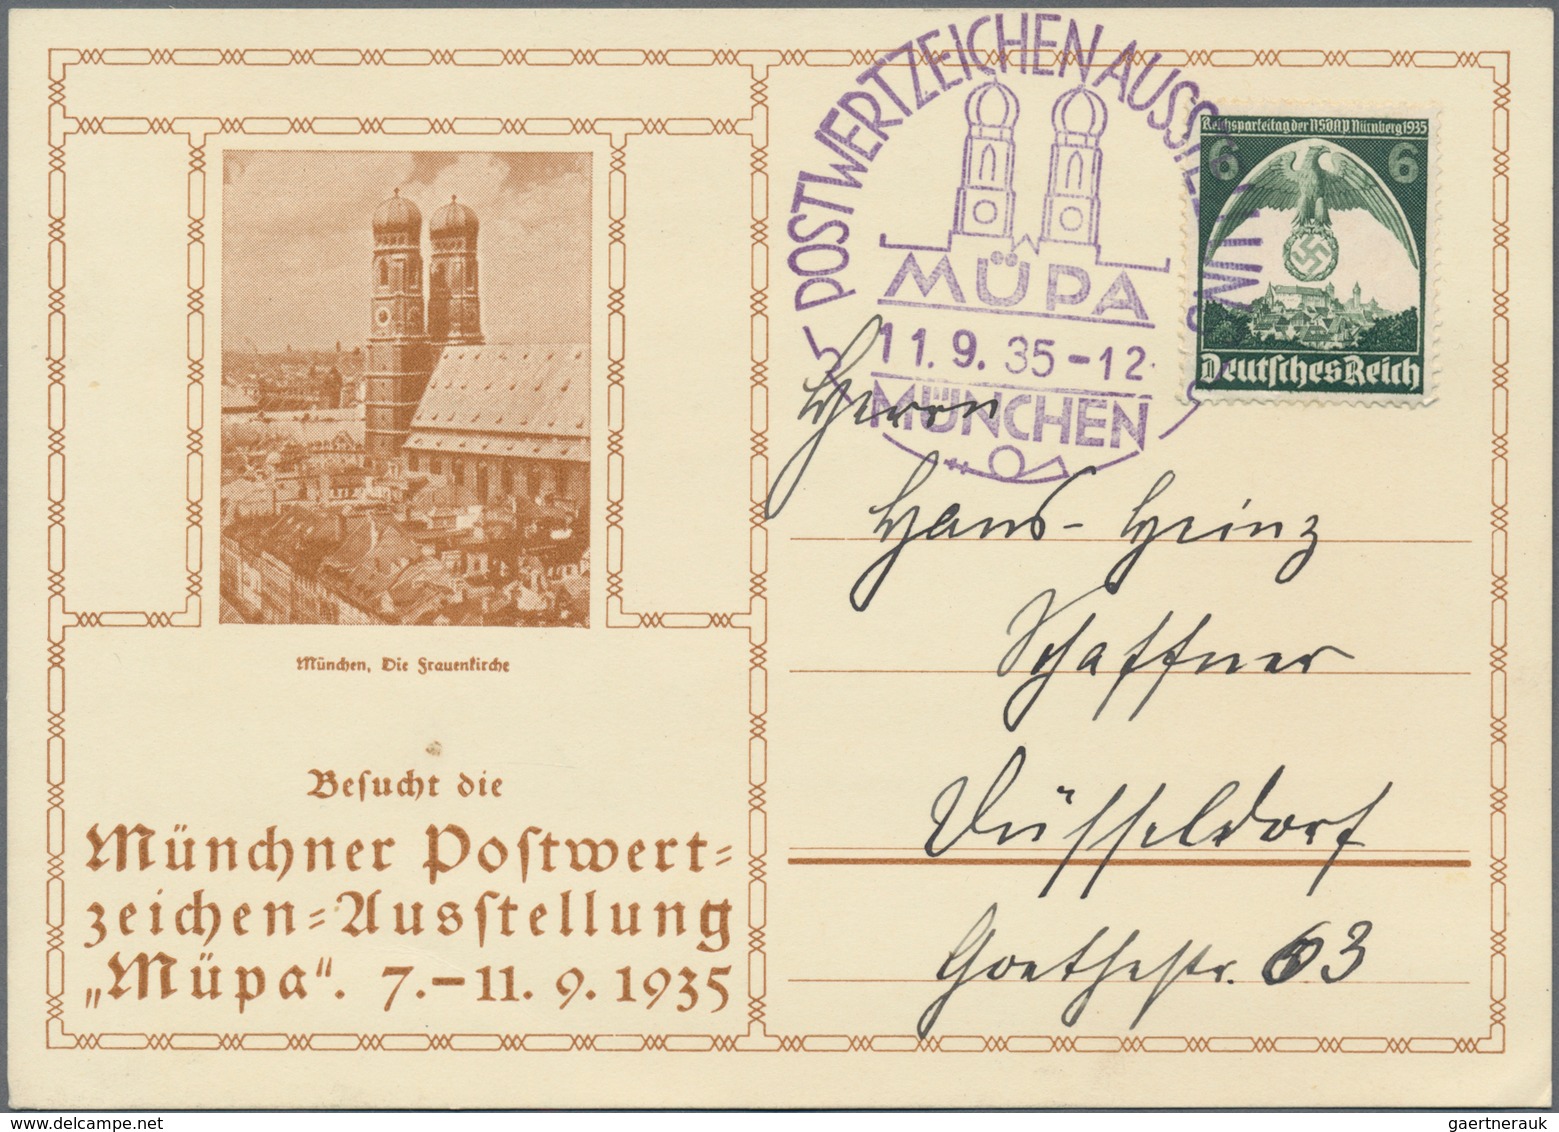 POSTWERTZEICHEN AUSSTELLUNG
MÜPA
11.9.35-12
MÜNCHEN
Reichsparteitag der NSDAP Nürnberg 1935
6 6
Deutsches Reich
München, Die Frauenkirche
Besucht die
Münchner Postwert=
zeichen=Ausstellung
„Müpa“. 7.–11. 9. 1935
Herrn
Hans-Heinz
Schaffner
Düsseldorf
Goethestr. 63
gaertnerauk